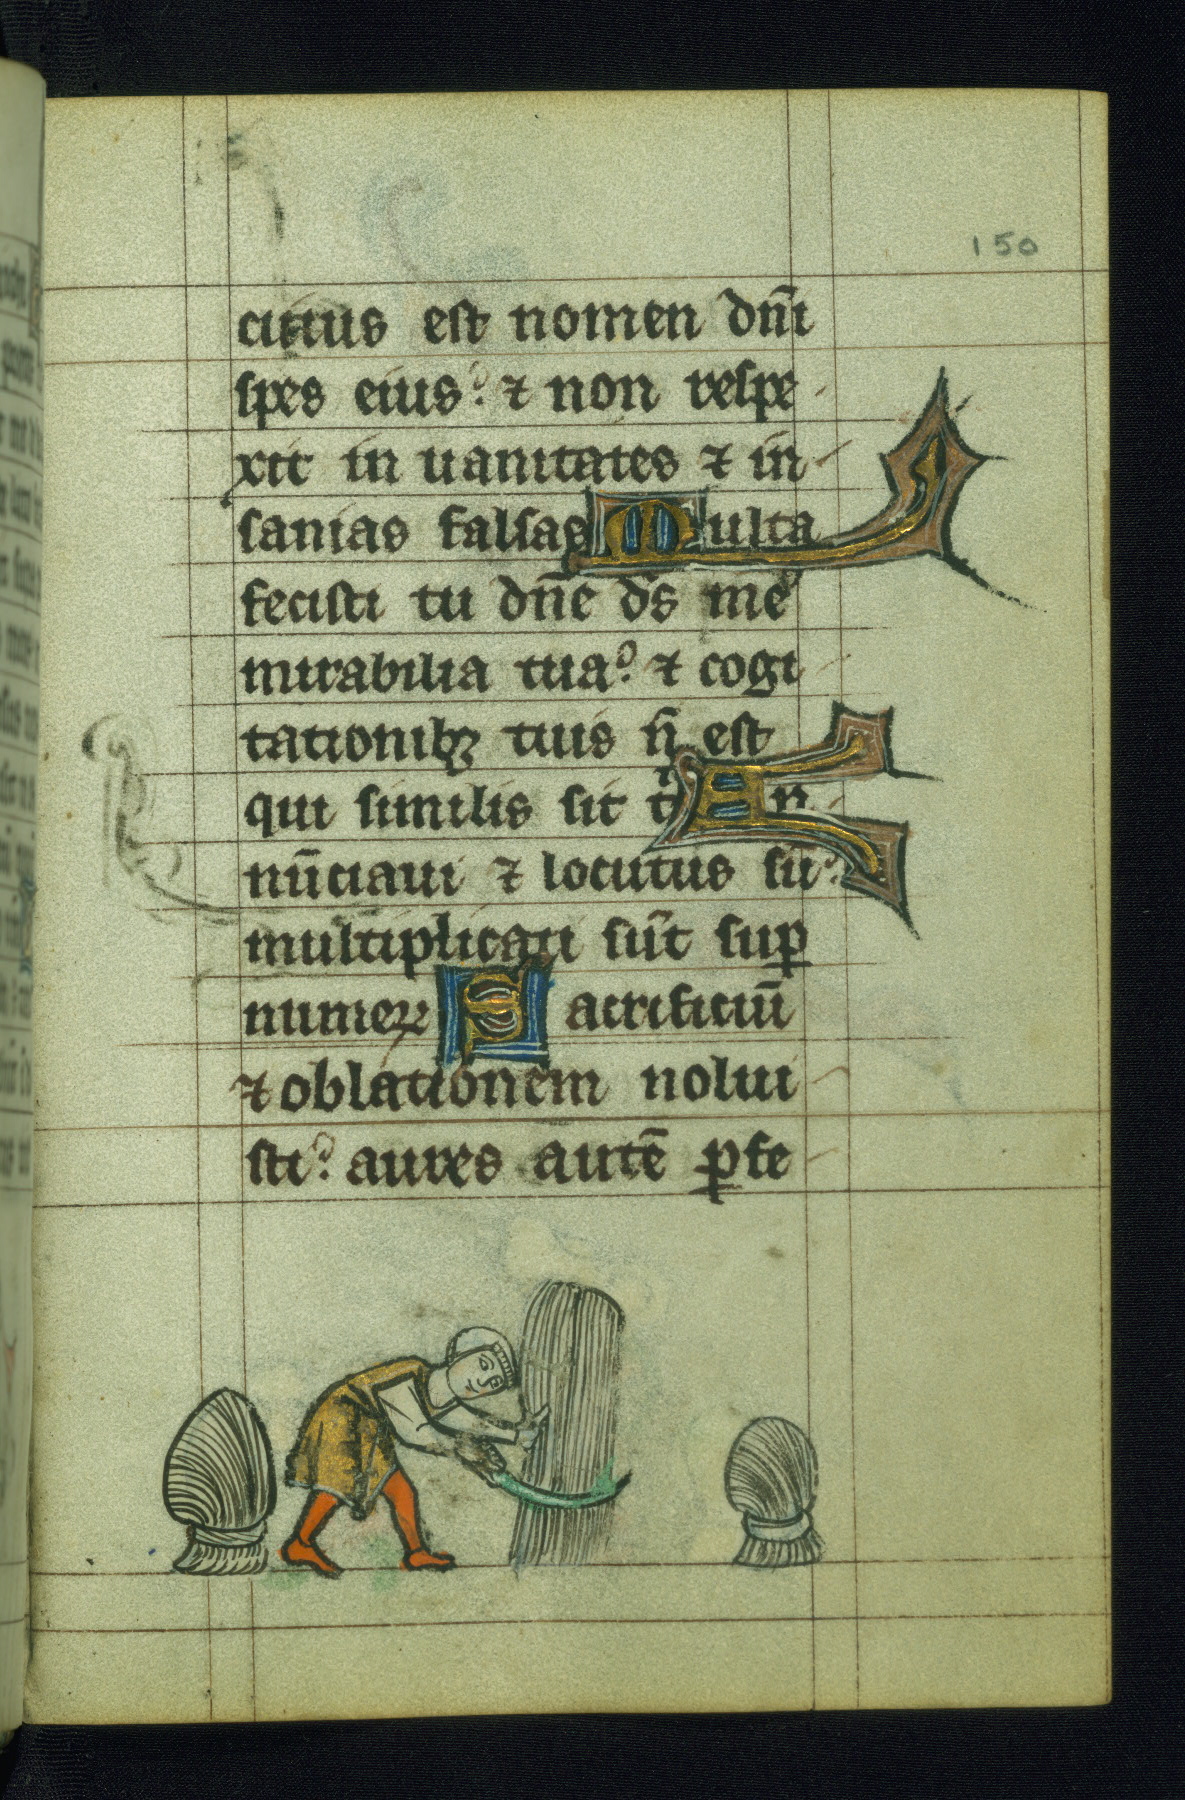 150
cuius est nomen dn̄i
spes eius: ⁊ non respe
xit in uanitates ⁊ in
sanias falsas Multa
fecisti tu dn̄e ds̄ me᾿
mirabilia tua: ⁊ cogi
tationibꝫ tuis n̄ est
qui similis sit t̄ An
nūciaui ⁊ locutus sū:
multiplicati sūt suꝑ
numeꝝ Sacrificiū
⁊ oblationem nolui
sti: aures autē ꝑfe